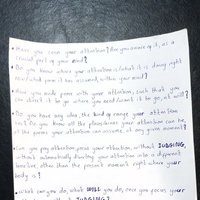 • Have you seen your attention? Are you aware of it, as a
crucial part of your mind?
• Do you know where your attention is/what it is doing right
now? what power it has assumed, within your mind?
• Have you made peace with your attention, such that you
can direct it to go where you need/want it to go, at will?
• Do you have any idea, the kind of range your attention
has? Do you know all the places/areas your attention can be,
all the forms your attention can assume, at any given moment?
• Can you pay attention to your attention, without JUDGING,
without automatically diverting your attention into a different
timeline, other than the present moment, right where your
body is?
• What can you do, what WILL you do, once you focus your
JUDGING?